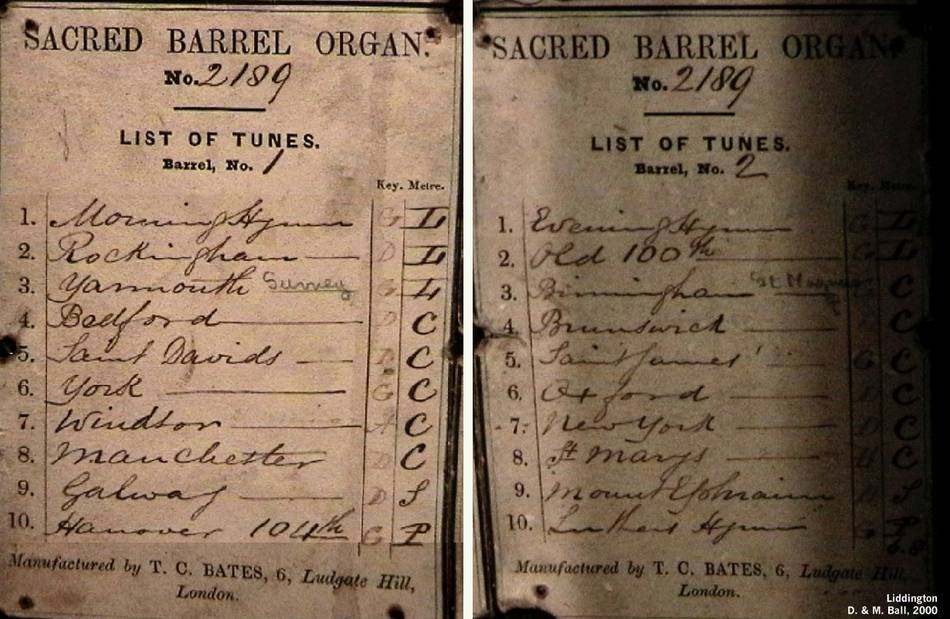 SACRED BARREL ORGAN.
No. 2189
LIST OF TUNES.
Barrel, No. 1
Key. Metre.
1. Morning Hymn G L
2. Rockingham D L
3. Yarmouth Surrey G L
4. Bedford D C
5. Saint Davids D C
6. York G C
7. Windsor A C
8. Manchester D C
9. Galway D S
10. Hanover 104th G P
Manufactured by T. C. BATES, 6, Ludgate Hill,
London.
SACRED BARREL ORGAN.
No. 2189
LIST OF TUNES.
Barrel, No. 2
Key. Metre.
1. Evening Hymn G L
2. Old 100th G L
3. Birmingham St Magnus G C
4. Brunswick C
5. Saint James' G C
6. Oxford C
7. New York D C
8. St Marys C
9. Mount Ephraim S
10. Luthers Hymn G P
Manufactured by T. C. BATES, 6, Ludgate Hill,
London.
Liddington
D. & M. Ball, 2000